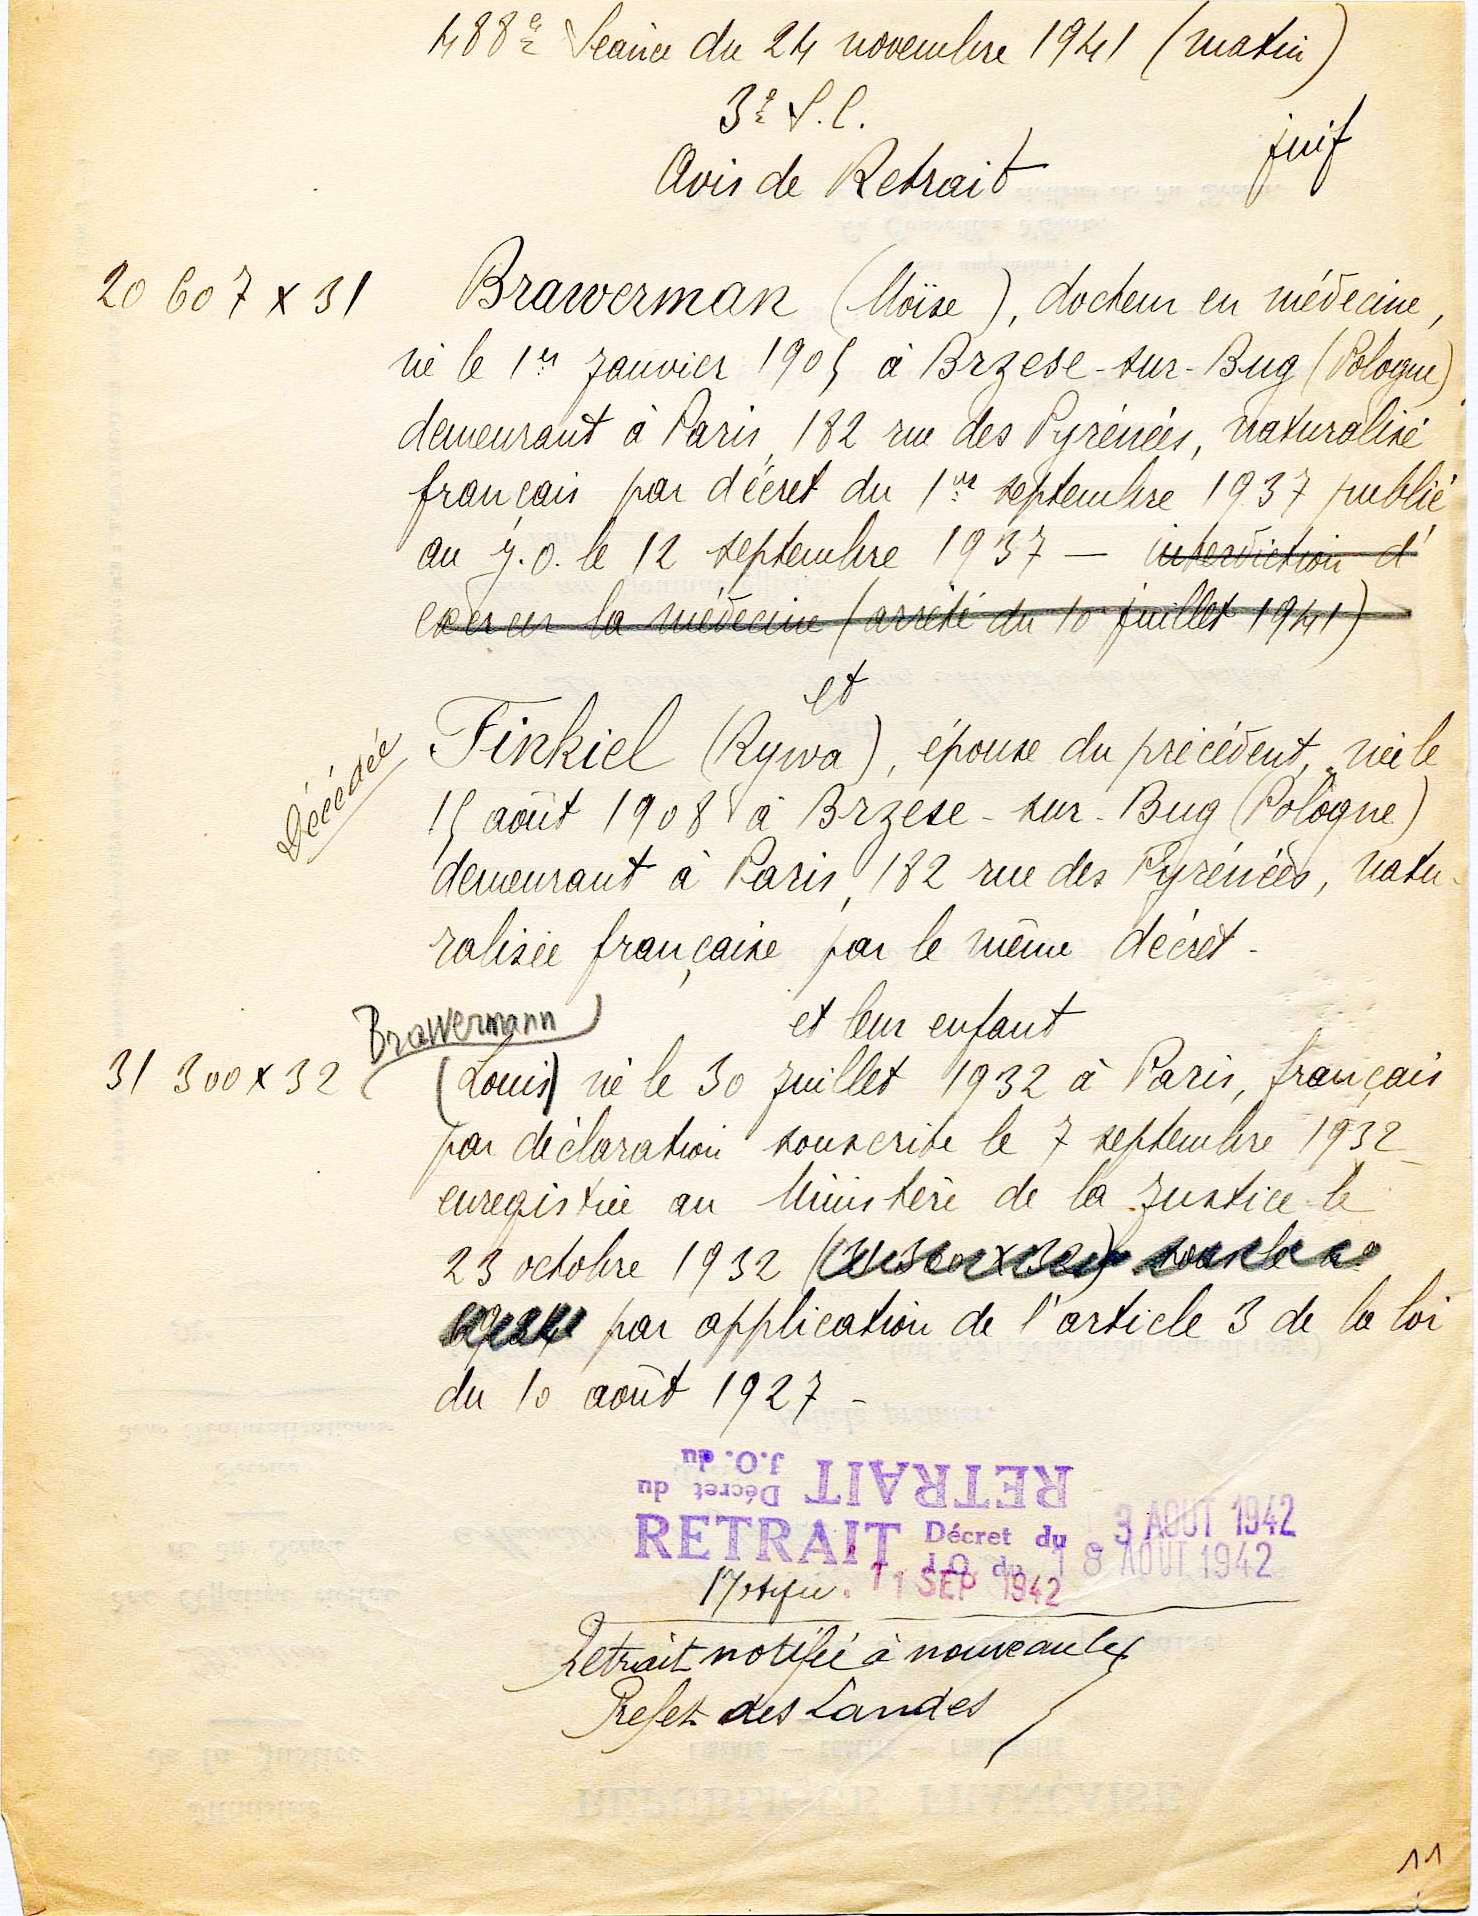 488e Séance du 24 novembre 1941 (matin)
3e S.C.
juif
Avis de Retrait
20 607 x 31 Brawerman (Moïse), docteur en médecine,
né le 1er Janvier 1905 à Brzese-sur-Bug (Pologne)
demeurant à Paris, 182 rue des Pyrénées, naturalisé
français par décret du 1er septembre 1937 publié
au J.O. le 12 septembre 1937 — interdiction d'
exercer la médecine (arrêté du 10 juillet 1941)
et
Décédée
Finkiel (Rywa), épouse du précédent, née le
15 août 1908 à Brzese-sur-Bug (Pologne)
demeurant à Paris, 182 rue des Pyrénées, natu-
ralisée française par le même décret -
et leur enfant
Brawermann
31 300 x 32 (Louis) né le 30 Juillet 1932 à Paris, français
par déclaration souscrite le 7 septembre 1932
enregistrée au Ministère de la Justice le
23 octobre 1932
par application de l'article 3 de la loi
du 10 août 1927 -
RETRAIT Décret du
J.O. du
RETRAIT Décret du - 3 AOUT 1942
J.O. du 18 AOUT 1942
Notifié. 11 SEP 1942
Retrait notifié à nouveau le
Prefet des Landes
11